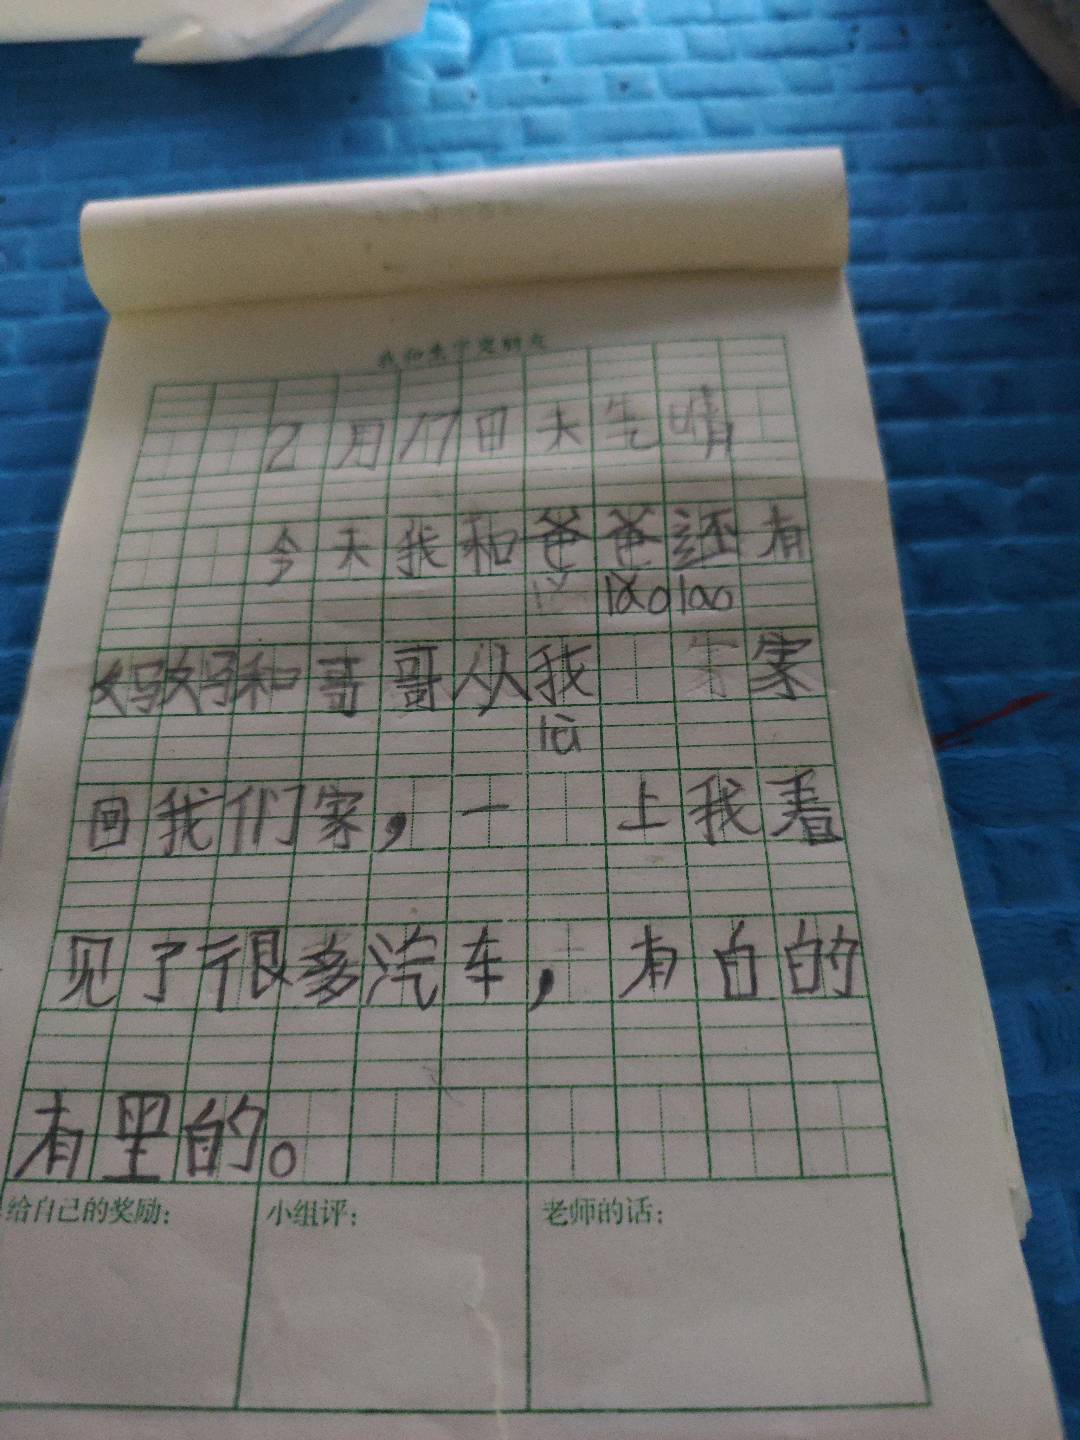 我和生字交朋友
2月17日天气晴
今天我和爸爸还有
妈妈和哥哥从我 家
回我们家,一 上我看
见了很多汽车,有白的
有里的。
给自己的奖励: 小组评: 老师的话: